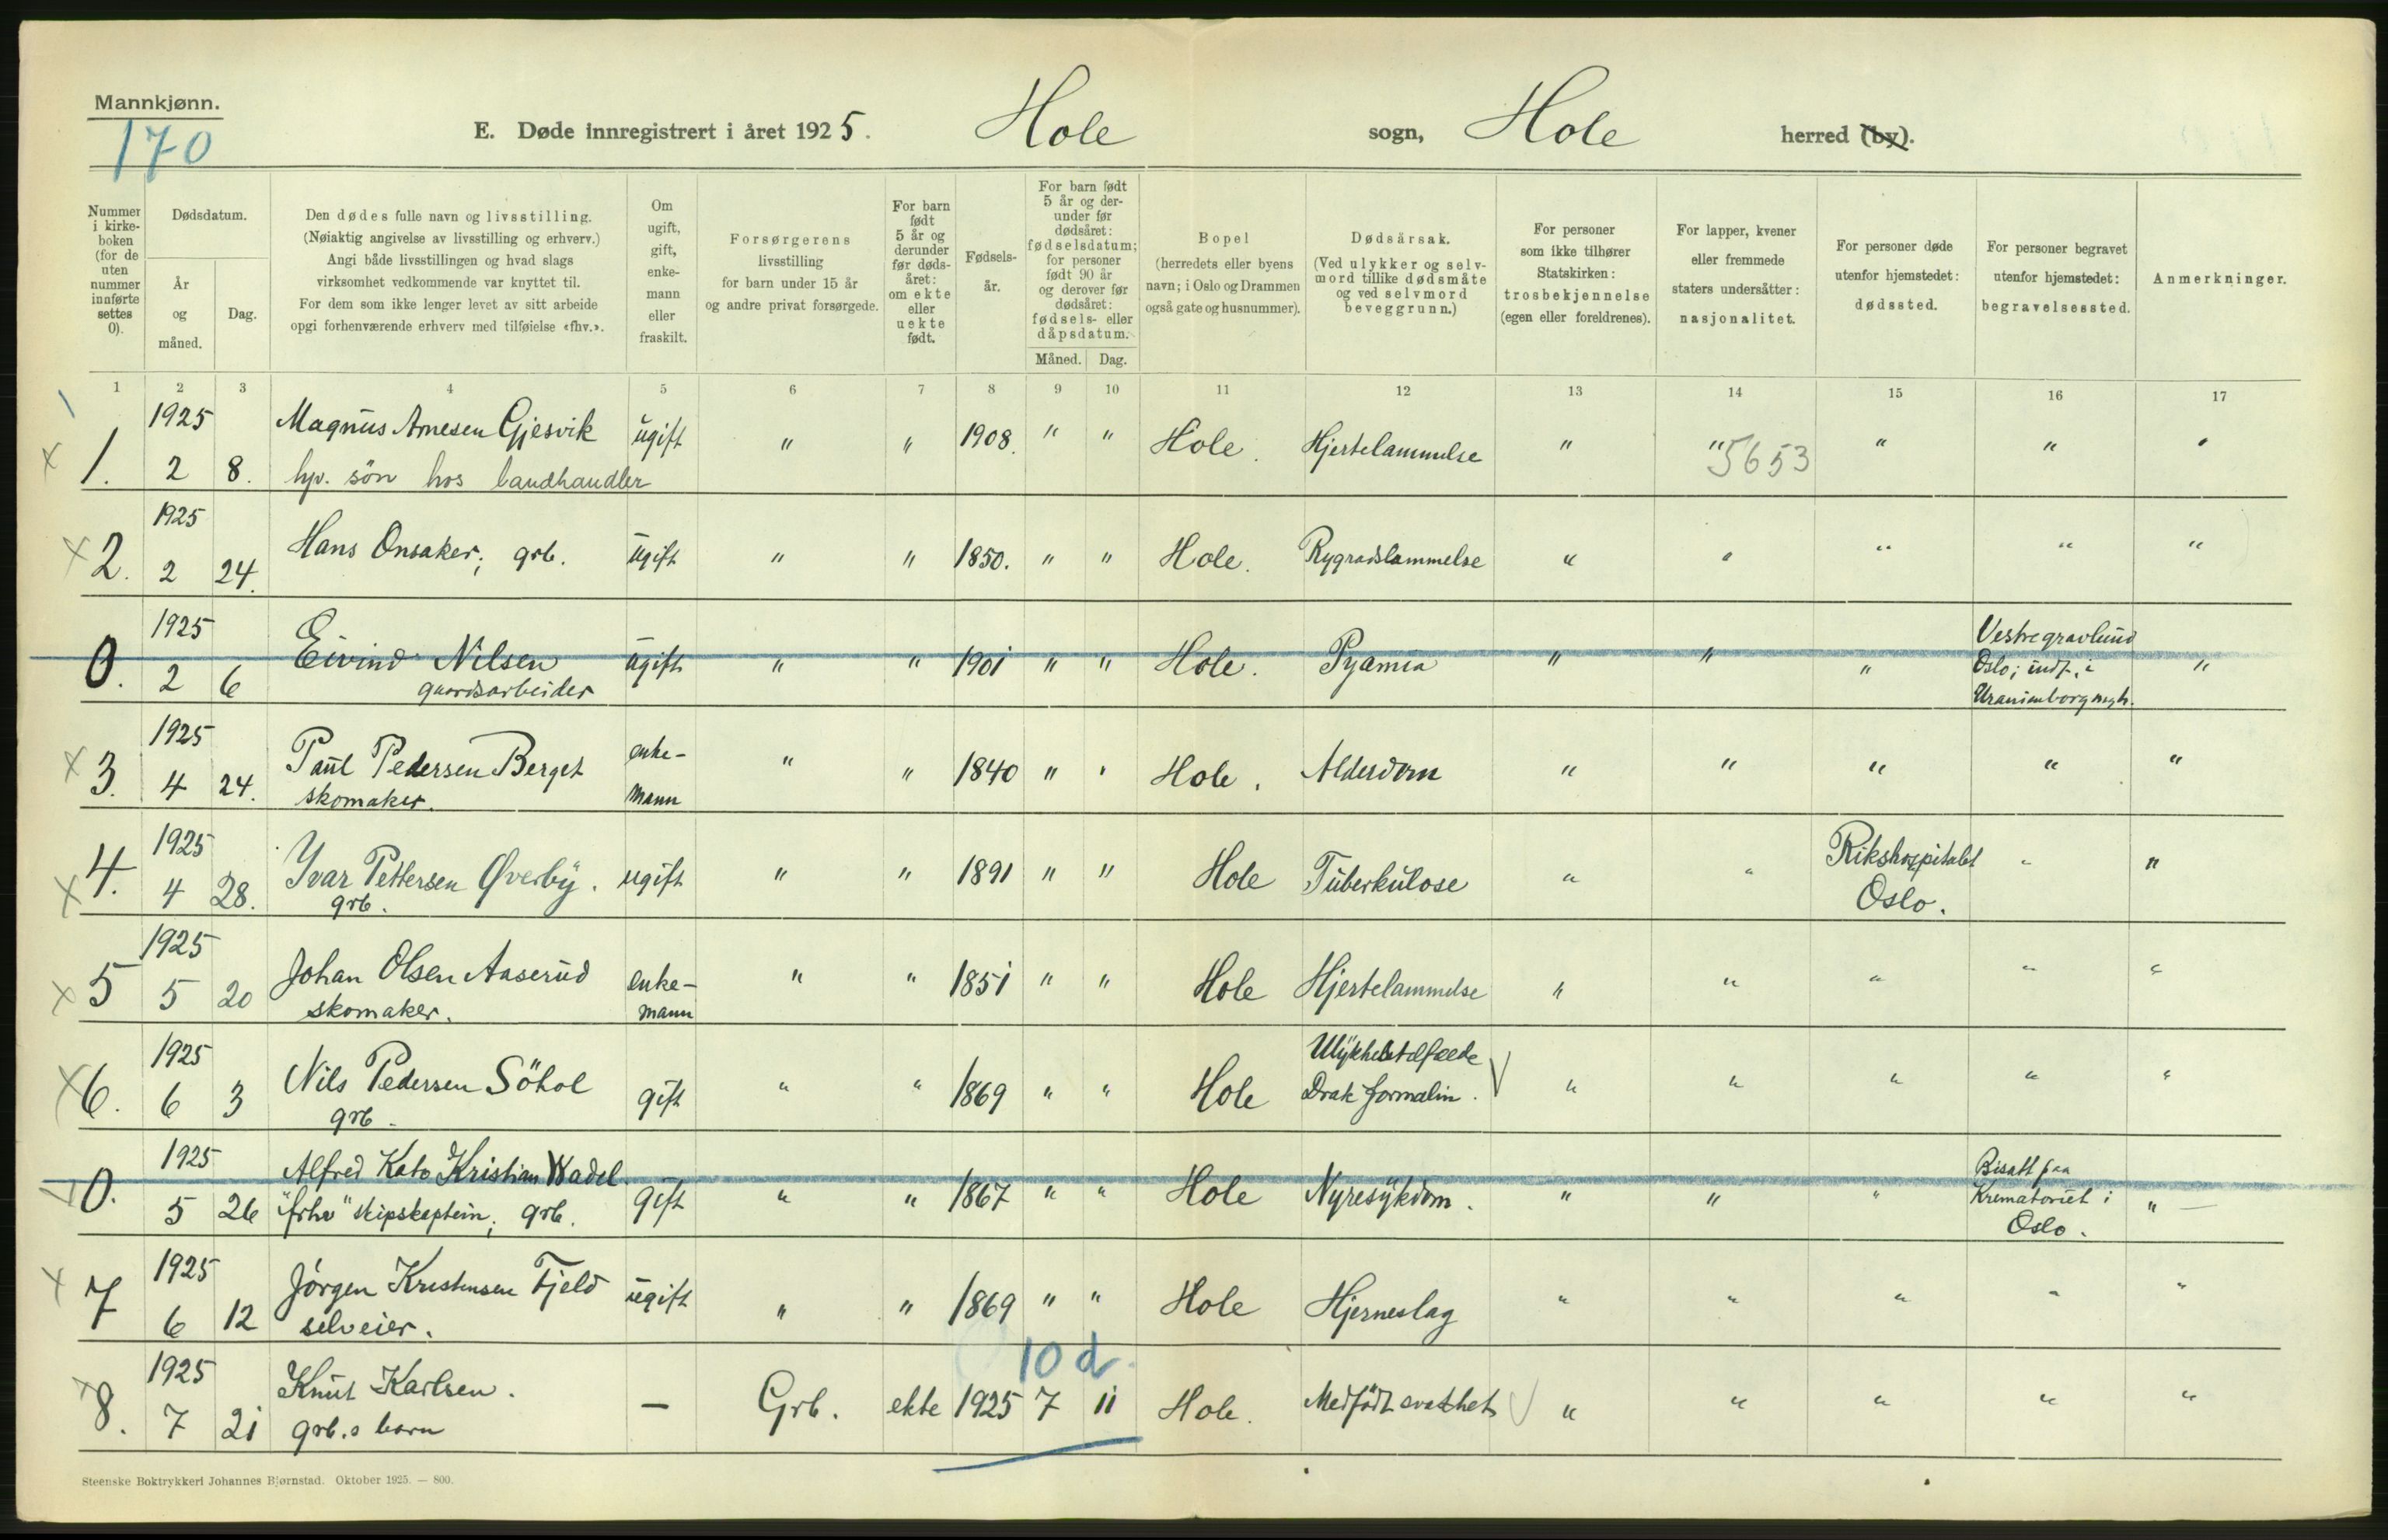 Mannkjønn.
170
E. Døde innregistrert i året 1925. Hole sogn, Hole herred (by).
Nummer i kirke- boken (for de uten nummer innførte settes 0).
Dødsdatum.
År og måned.
Dag.
Den dødes fulle navn og livsstilling.
(Nøiaktig angivelse av livsstilling og erhverv.)
Angi både livsstillingen og hvad slags
virksomhet vedkommende var knyttet til.
For dem som ikke lenger levet av sitt arbeide
opgi forhenværende erhverv med tilføielse «fhv.».
Om ugift, gift, enke- mann eller fraskilt.
Forsørgerens
livsstilling
for barn under 15 år
og andre privat forsørgede.
For barn født 5 år og derunder før døds- året: om ekte eller uekte født.
Fødsels- år.
For barn født 5 år og der- under før dødsåret: fødselsdatum; for personer født 90 år og derover før dødsåret: fødsels- eller dåpsdatum.
Måned. Dag.
Bopel
(herredets eller byens
navn; i Oslo og Drammen
også gate og husnummer).
Dødsårsak.
(Ved ulykker og selv-
mord tillike dødsmåte
og ved selvmord
beveggrunn.)
For personer
som ikke tilhører
Statskirken:
trosbekjennelse
(egen eller foreldrenes).
For lapper, kvener
eller fremmede
staters undersåtter:
nasjonalitet.
For personer døde
utenfor hjemstedet:
dødssted.
For personer begravet
utenfor hjemstedet:
begravelsessted.
Anmerkninger.
1 2 3 4 5 6 7 8 9 10 11 12 13 14 15 16 17
1925 Magnus Arnesen Gjesvik ugift " " 1908. " " Hole. Hjertelammelse " " 5653 " " "
x 1. 2 8. hjv. sön hos landhandler
1925
x 2. 2 24. Hans Onsaker; grb. ugift " " 1850. " " Hole. Rygradslammelse " " " " "
1925 Vestre gravlund
0. 2 6 Eivind Nilsen ugift " " 1901 " " Hole. Pyämia " " " Oslo; indf. i "
gaardsarbeider Uranienborg mgh.
1925 enke-
x 3. 4 24. Paul Pedersen Berget " " 1840 " " Hole. Alderdom " " " " "
skomaker. mann
1925 Rikshospitalet
x 4. 4 28. Yvar Pettersen Øverby. ugift " " 1891 " " Hole Tuberkulose " " " "
grb. Oslo.
1925
x 5 5 20 Johan Olsen Aaserud enke- " " 1851 " " Hole Hjertelammelse " " " " "
skomaker. mann
1925 Ulykkestilfælde
x 6. 6 3 Nils Pedersen Söhol gift " " 1869 " " Hole Drak formalin. " " " " "
grb.
1925 Alfred Kato Kristian Wadel. Bisatt paa
0. 5 26 "frhv" skipskaptein; grb. gift " " 1867 " " Hole Nyresykdom. " " " Krematoriet i "
Oslo.
1925
x 7 6 12 Jörgen Kristensen Fjeld ugift " " 1869 " " Hole Hjerneslag " " " " "
selveier.
10 d.
1925
x 8. 7 21 Knut Karlsen. — Grb. ekte 1925 7 11 Hole. Medfödt svakhet " " " " "
grb.s barn
Steenske Boktrykkeri Johannes Bjørnstad. Oktober 1925. — 800.